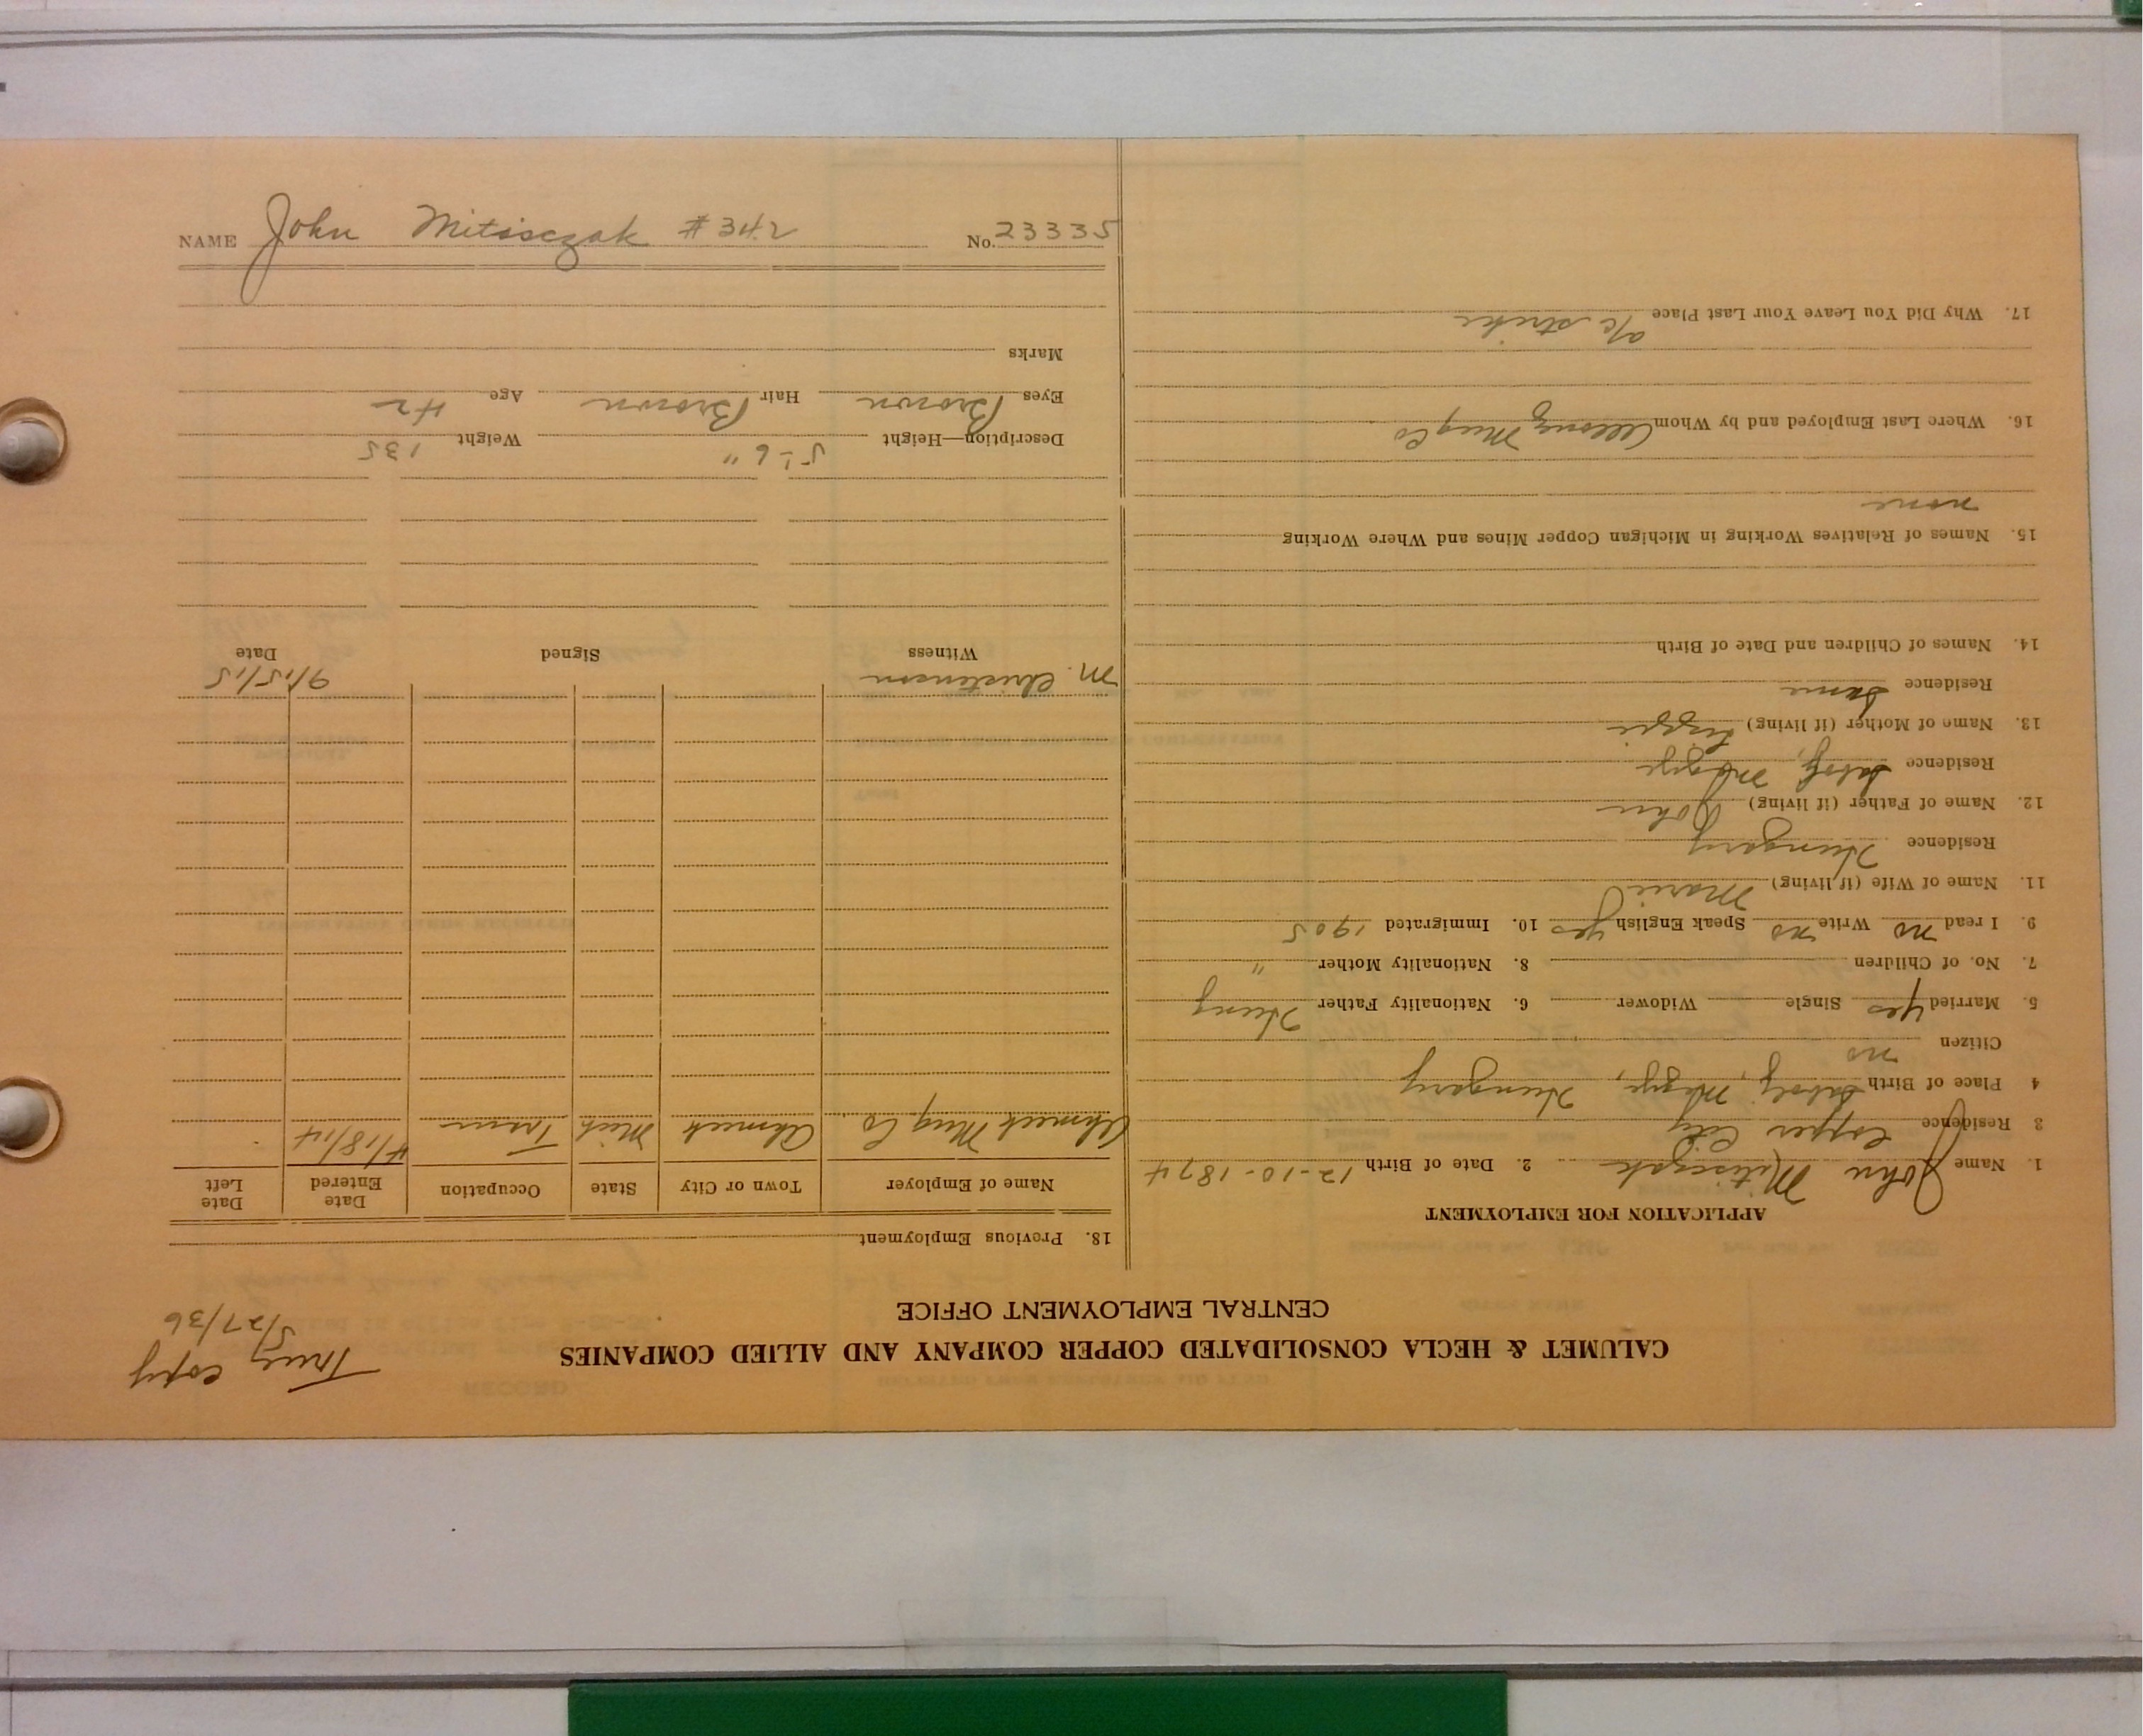 NAME John Mitisczak #342 No. 23335
True copy
5/27/36
CALUMET & HECLA CONSOLIDATED COPPER COMPANY AND ALLIED COMPANIES
CENTRAL EMPLOYMENT OFFICE
APPLICATION FOR EMPLOYMENT
1. Name John Mitisczak 2. Date of Birth 12-10-1874
3 Residence Copper City
4 Place of Birth Megye, Hungary
Citizen no
5. Married yes Single Widower 6. Nationality Father Hung
7. No. of Children 8. Nationality Mother "
9. I read no Write no Speak English yes 10. Immigrated 1905
11. Name of Wife (if living) Marie
Residence Hungary
12. Name of Father (if living) John
Residence Megye
13. Name of Mother (if living) Lizzie
Residence Same
14. Names of Children and Date of Birth
15. Names of Relatives Working in Michigan Copper Mines and Where Working
none
16. Where Last Employed and by Whom Allouez Mng Co
17. Why Did You Leave Your Last Place a/c strike
18. Previous Employment
Name of Employer Town or City State Occupation Date Entered Date Left
Ahmeek Mng Co. Ahmeek Mich Tram 4/18/14
M. Christensen 9/15/15
Witness Signed Date
Description—Height 5'-6" Weight 135
Eyes Brown Hair Brown Age 42
Marks